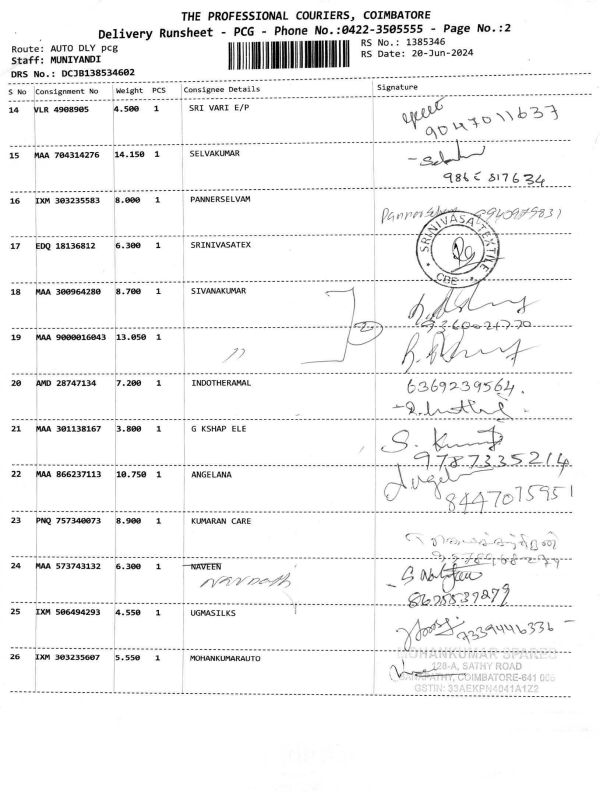 THE PROFESSIONAL COURIERS, COIMBATORE
Delivery Runsheet - PCG - Phone No.:0422-3505555 - Page No.:2
Route: AUTO DLY pcg RS No.: 1385346
Staff: MUNIYANDI RS Date: 20-Jun-2024
DRS No.: DCJB138534602
S No Consignment No Weight PCS Consignee Details Signature
14 VLR 4908905 4.500 1 SRI VARI E/P
9047011637
15 MAA 704314276 14.150 1 SELVAKUMAR
16 IXM 303235583 8.000 1 PANNERSELVAM
Pannerselvam 9940979831
17 EDQ 18136812 6.300 1 SRINIVASATEX
SRINIVASA TEXTILE
CBE
18 MAA 300964280 8.700 1 SIVANAKUMAR
2
19 MAA 9000016043 13.050 1
20 AMD 28747134 7.200 1 INDOTHERAMAL
6369239564.
21 MAA 301138167 3.800 1 G KSHAP ELE
S. Kumar
9787335214
22 MAA 866237113 10.750 1 ANGELANA
Angel
8447075951
23 PNQ 757340073 8.900 1 KUMARAN CARE
24 MAA 573743132 6.300 1 NAVEEN
8675839279
25 IXM 506494293 4.550 1 UGMASILKS
7339446336
26 IXM 303235607 5.550 1 MOHANKUMARAUTO
MOHANKUMAR SPARES
128-A, SATHY ROAD
GANAPATHY, COIMBATORE-641 006
GSTIN: 33AEKPN4041A1Z2